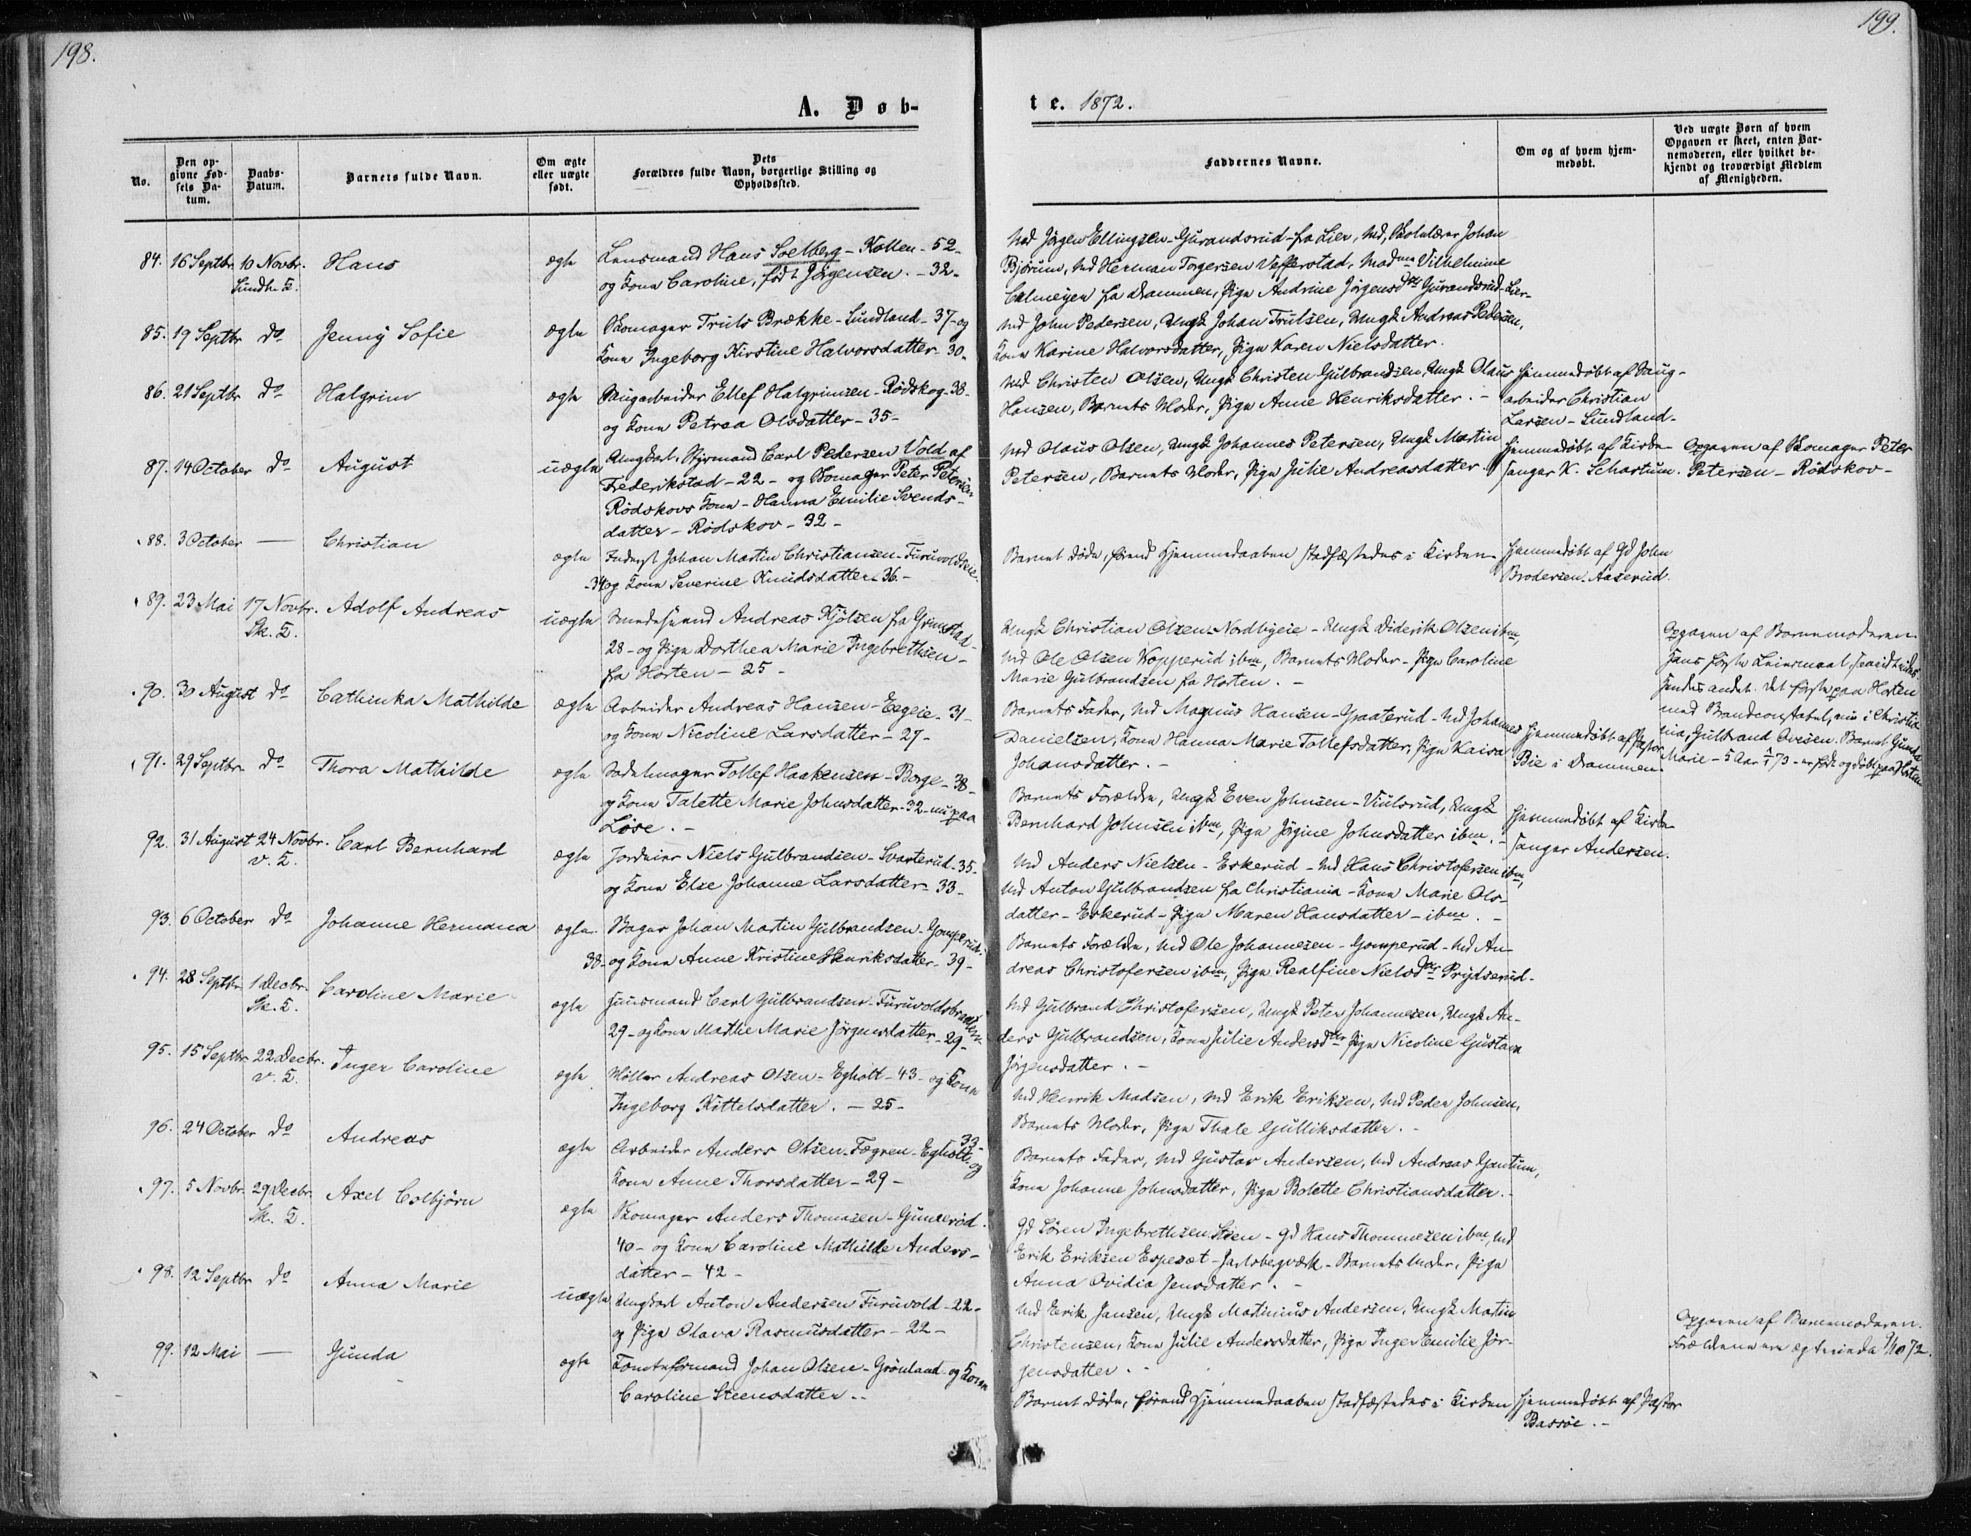 198.
A. Døb-
No.
Den op-
givne Fød-
sels Da-
tum.
Daabs-
Datum.
Barnets fulde Navn.
Om ægte
eller uægte
født.
Dets
Forældres fulde Navn, borgerlige Stilling og
Opholdssted.
84. 16 Septbr. 10 Novbr. Hans ægte Lensmand Hans Solberg - Kollen - 52 -
Sundh. T. og Kone Caroline, født Jörgensen. - 32 -
85. 19 Septbr d⁰ Jenny Sofie ægte Skomager Truls Brække - Sundland - 37 - og
Kone Ingeborg Kirstine Halvorsdatter - 30 -
86. 21 Septbr d⁰ Halgrim ægte Saugarbeider Ellef Halgrimsen - Rødskog - 38 -
og Kone Petrea Olsdatter - 35 -
87. 14 October d⁰ August uægte Ungkarl, Styrmand Carl Pedersen Vold af
Frederikstad - 22 - og Skomager Peter Petersen
Rødskovs Kone - Hanna Emilie Svends-
datter - Rødskov - 32 -
88. 3 October — Christian ægte Inderst Johan Martin Christiansen - Furuvoldseie
- 34 og Kone Severine Knudsdatter - 36 -
89. 23 Mai 17 Novbr. Adolf Andreas uægte Smedesvend Andreas Kjölsen fra Grimstad -
Sk. T. 28 - og Pige Dorthea Marie Ingebrethsen -
fra Horten - 25 -
90. 30 August d⁰ Cathinka Mathilde ægte Arbeider Andreas Hansen - Eegeie - 31 -
og Kone Nicoline Larsdatter - 27 -
91. 29 Septbr d⁰ Thora Mathilde ægte Sadelmager Tollef Haakensen - Borge - 38 -
og Kone Talette Marie Johnsdatter - 32 - nu paa
Löse. -
92. 31 August 24 Novbr. Carl Bernhard ægte Jordeier Niels Gulbrandsen - Svarterud - 35 -
v. T. og Kone Else Johanne Larsdatter - 33 -
93. 6 October d⁰ Johanne Hermana ægte Bager Johan Martin Gulbrandsen - Gomperud -
38 - og Kone Anne Kristine Henriksdatter - 39 -
94. 28 Septbr 1 Decbr. Caroline Marie ægte Huusmand Carl Gulbrandsen - Furuvoldsbraaten
Sk. T. 29 - og Kone Mathe Marie Jörgensdatter - 29 -
95. 15 Septbr 22 Decbr. Inger Caroline ægte Möller Andreas Olsen - Egholt - 43 - og Kone
v. T. Ingeborg Kittelsdatter. - 25 -
96. 24 October d⁰ Andreas ægte Arbeider Anders Olsen - Fegren - Eghott - 33 - og
Kone Anne Thorsdatter - 29 -
97. 5 Novbr. 29 Decbr. Axel Esbjørn ægte Skomager Anders Thomasen - Gunnerød
Sk. T. 40 - og Kone Caroline Mathilde Anders-
datter - 42 -
98. 12 Septbr d⁰ Anna Marie uægte Ungkarl Anton Andersen Furuvold - 22 -
og Pige Olava Rasmusdatter - 22 -
99. 12 Mai — Gunda ægte Tomteformand Johan Olsen - Grönland - og Kone
Caroline Steensdatter -
199.
te. 1872.
Faddernes Navne.
Om og af hvem hjem-
medøbt.
Ved uægte Børn af hvem
Opgaven er skeet, enten Bar-
nemoderen, eller hvilket be-
kjendt og troværdigt Medlem
af Menigheden.
Md Jörgen Ellingsen - Gurandsrud - fra Lier, Md, Skolelærer Johan
Bjørum, Md Herman Torgersen Vefferstad, Madme Vilhelmine
Calmeyer fra Drammen, Pige Andrine Jörgensdtr Gurandsrud - Lier -
Md John Pedersen, Ungk Johan Trulsen, Ungk Andreas Pedersen,
Kone Karine Halvorsdatter, Pige Karen Nielsdatter.
Md Christen Olsen, Ungk Christen Gulbrandsen, Ungk Olaus hjemmedøbt af Saug-
Hansen, Barnets Moder, Pige Anne Henriksdatter. - arbeider Christian
Larsen - Sundland -
Md Olaus Olsen, Ungk Johannes Petersen, Ungk Martin hjemmedøbt af Kirke- Opgaven af Skomager Peter
Petersen, Barnets Moder, Pige Julie Andreasdatter. sanger K. Schartum. Petersen - Rødskov -
Barnet døde, førend Hjemmedaaben stadfæstedes i Kirken - hjemmedøbt af Gd John
Brodersen Aaserud.
Ungk Christian Olsen - Nordbyeie - Ungk Diderik Olsen ibm, Opgaven af Barnemoderen.
Md Ole Olsen Kopperud ibm, Barnets Moder - Pige Caroline Hans første Leiermaal,
Marie Gulbrandsen fra Horten. - hendes andet. Det første paa Horten
Barnets Fader, Md Magnus Hansen - Gaaterud - Md Johannes hjemmedøbt af Pastor med Baadconstabel, nu i Christia-
Danielsen, Kone Hanna Marie Tollefsdatter, Pige Kaisa Bie i Drammen - nia, Gulbrand Oversen. Barnet Gunda
Johansdatter. - Marie - 5 Aar 1/1 73 - er født og døbt paa Horten
Barnets Forældre, Ungk Even Johnsen - Viulsrud, Ungk hjemmedøbt af Kirke-
Bernhard Johnsen ibm, Pige Jörgine Johnsdatter ibm. - sanger Andersen.
Md Anders Nielsen - Eskerud - Md Hans Christofersen ibm,
Md Anton Gulbrandsen fra Christiania - Kone Marie Ols-
datter - Eskerud - Pige Maren Hansdatter - ibm. -
Barnets Forældre, Md Ole Johannesen - Gomperud - Md An-
dreas Christofersen ibm, Pige Realfine Nielsdtr Prydserud -
Md Gulbrand Christofersen, Ungk Peter Johannesen, Ungk An-
ders Gulbrandsen, Kone Julie Andersdtr, Pige Nicoline Gustava
Jörgensdatter. -
Md Henrik Madsen, Md Erik Eriksen, Md Peder Johnsen,
Barnets Moder, Pige Thale Gulliksdatter. -
Barnets Fader, Md Gustav Andersen, Md Andreas Gantum,
Kone Johanne Johnsdatter, Pige Bolette Christiansdatter. -
Gd Sören Ingebrethsen Steen - Gd Hans Thommesen ibm, Md
Erik Eriksen Espeset - Jarlsbergværk - Barnets Moder, Pige
Anna Ovidia Jensdatter. -
Md Erik Jansen, Ungk Matinius Andersen, Ungk Martin Opgaven af Barnemoderen.
Christensen, Kone Julie Andersdatter, Pige Inger Emilie Jör- Forældrene ere egteviede
gensdatter. -
Barnet døde, førend Hjemmedaaben stadfæstedes i Kirken hjemmedøbt af Pastor
Bassøe. -